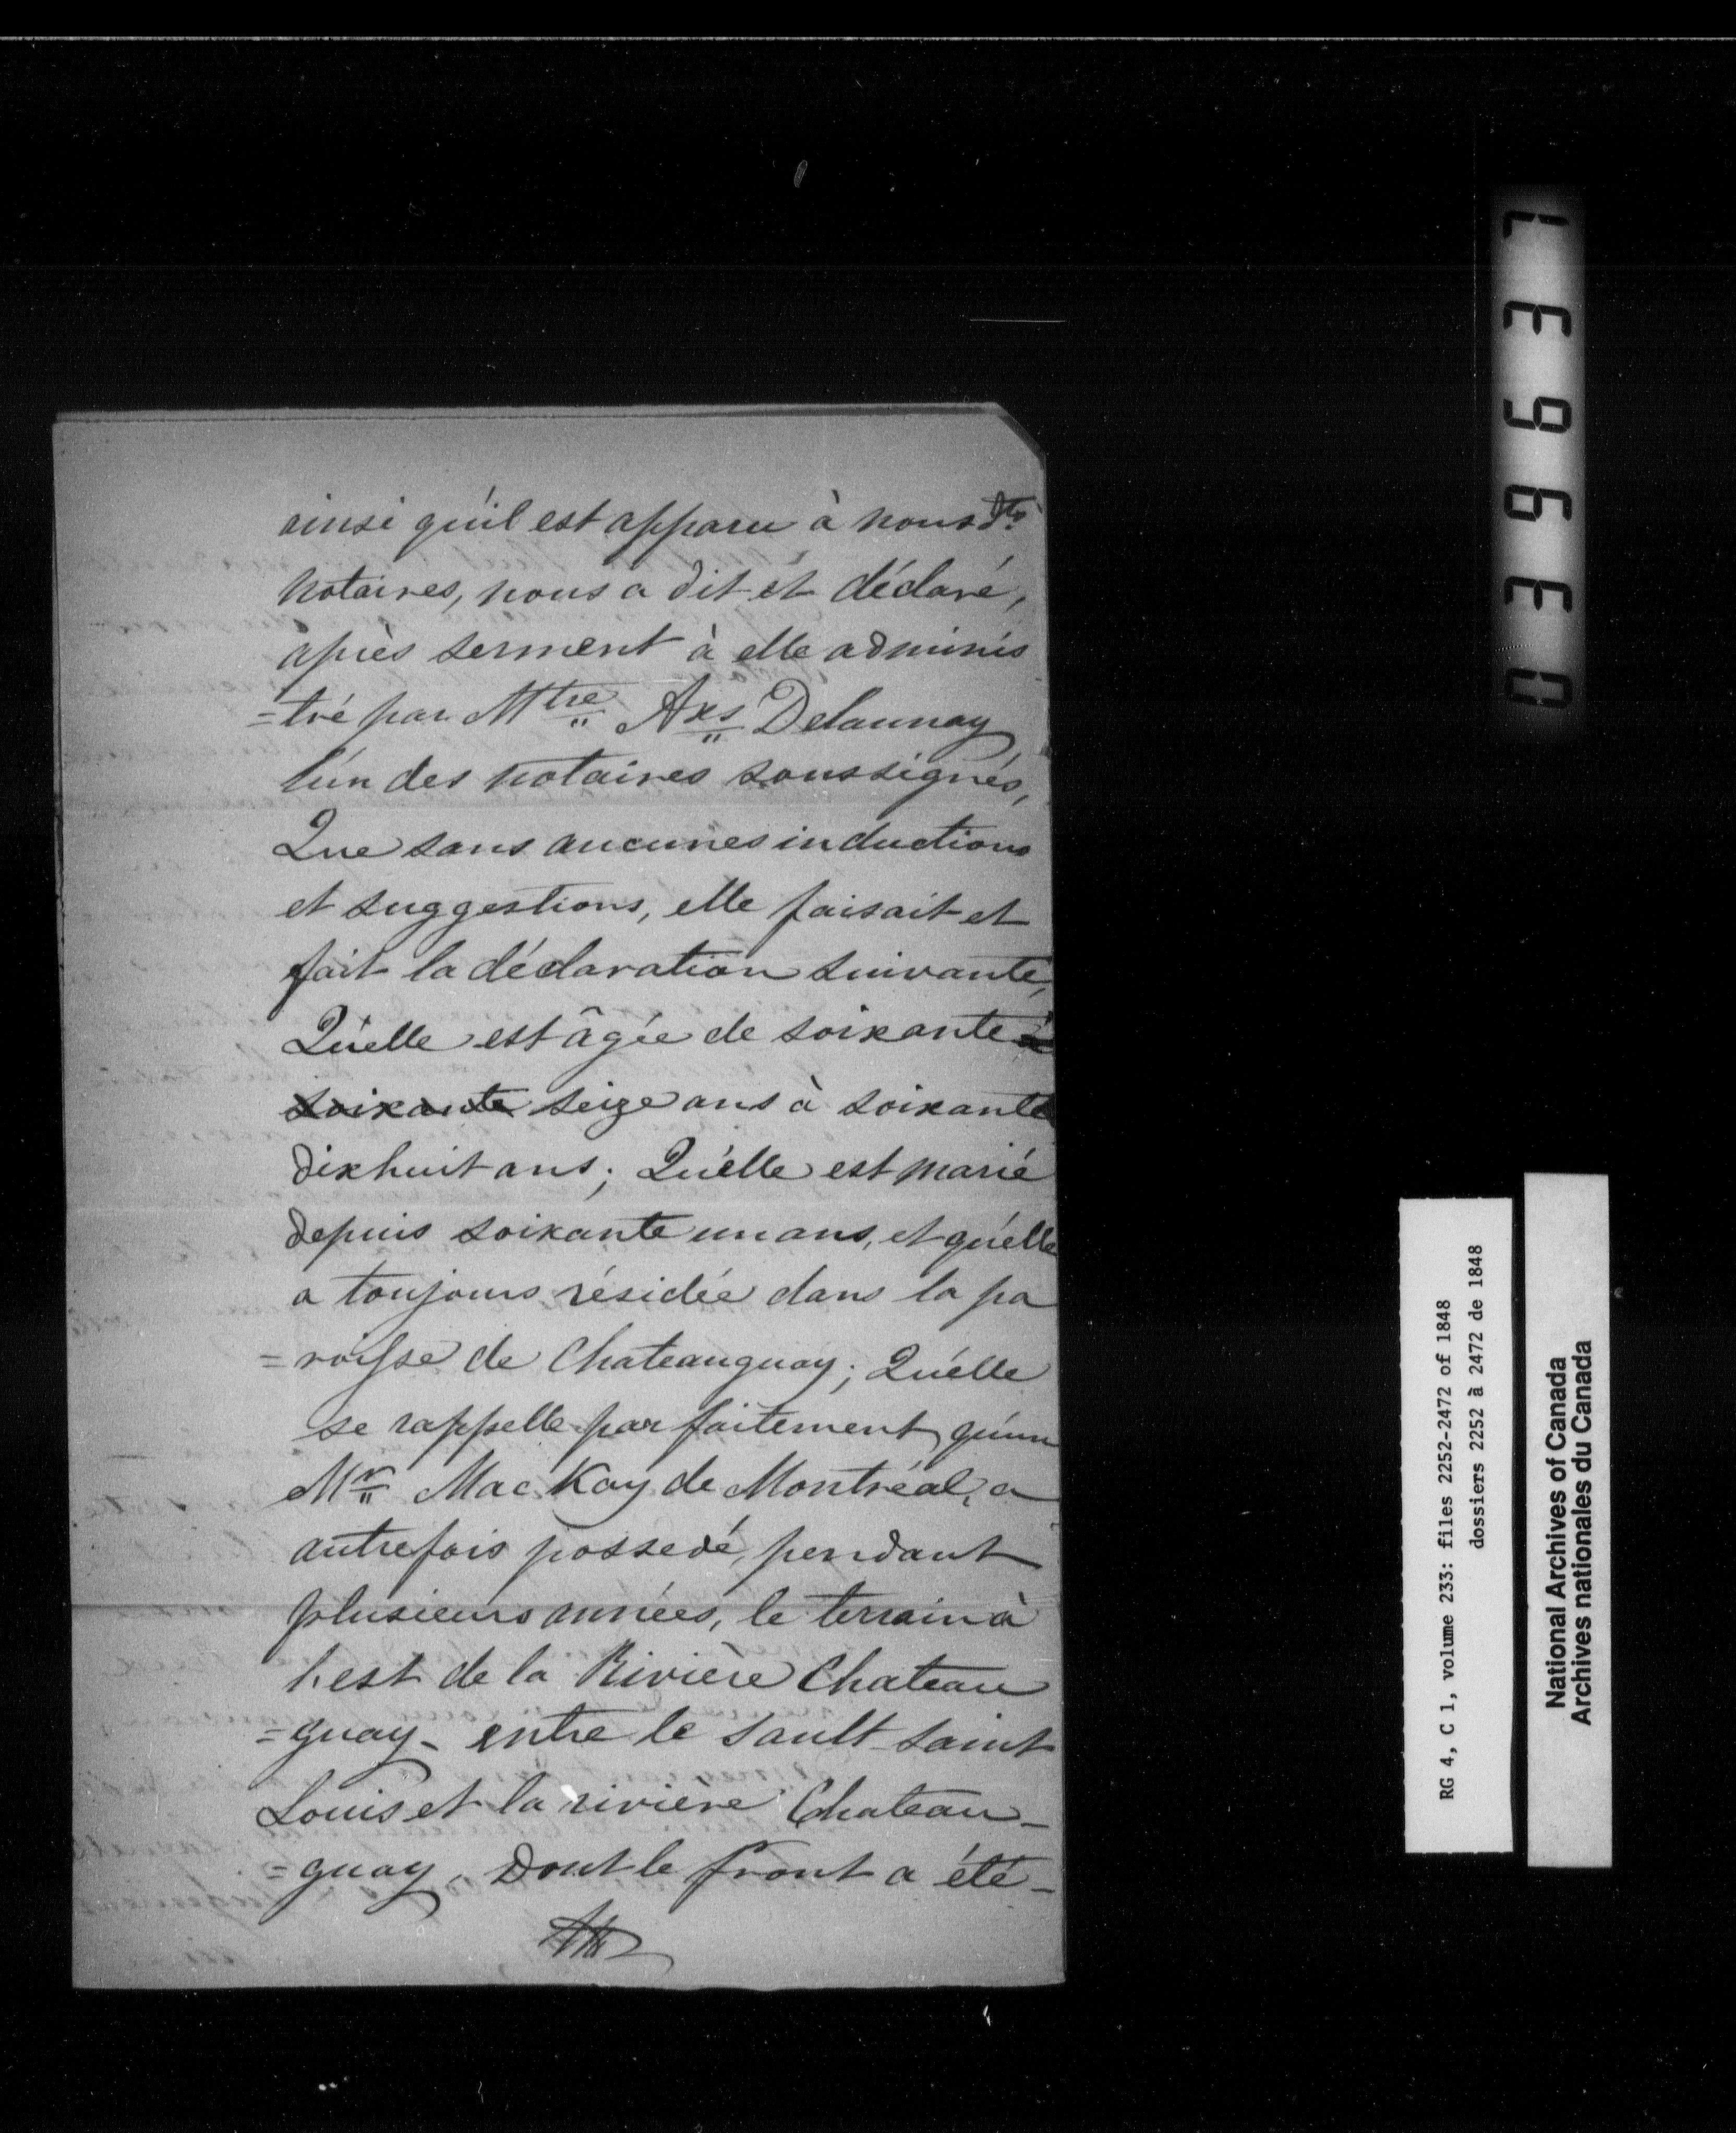 ainsi qu'il est apparu à nous dts
notaires, nous a dit et déclaré,
après serment à elle adminis
=tré par Mtre Axs Delaunay
l'un des notaires soussignés,
Que sans aucunes inductions
et suggestions, elle faisait et
fait la déclaration suivante,
Qu'elle est âgée de soixante à
soixante seize ans à soixante
dixhuit ans; Qu'elle est marié
depuis soixante un ans, et qu'elle
a toujours résidée dans la pa
=roisse de Chateauguay; Qu'elle
se rappelle parfaitement qu'un
Mr MacKay de Montréal, a
autrefois possedé, pendant
plusieurs années, le terrain à
l'est de la Rivière Chateau
=guay - entre le Sault Saint
Louis et la rivière Chateau-
=guay, Dont le front a été-
039637
RG 4, C 1, volume 233: files 2252-2472 of 1848
dossiers 2252 à 2472 de 1848
National Archives of Canada
Archives nationales du Canada